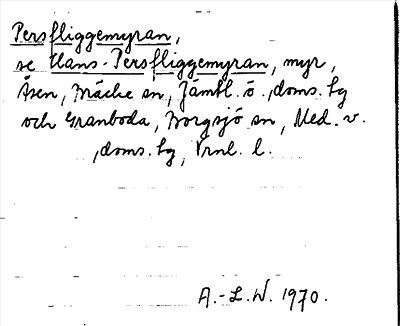 Persfliggemyran,
se Hans-Persfliggemyran, myr,
Åsen, Bräcke sn, Jämtl. ö., doms. hg
och Granboda, Borgsjö sn, Med. v.
, doms. hg, Vrnl. l.
A.-L.W. 1970.